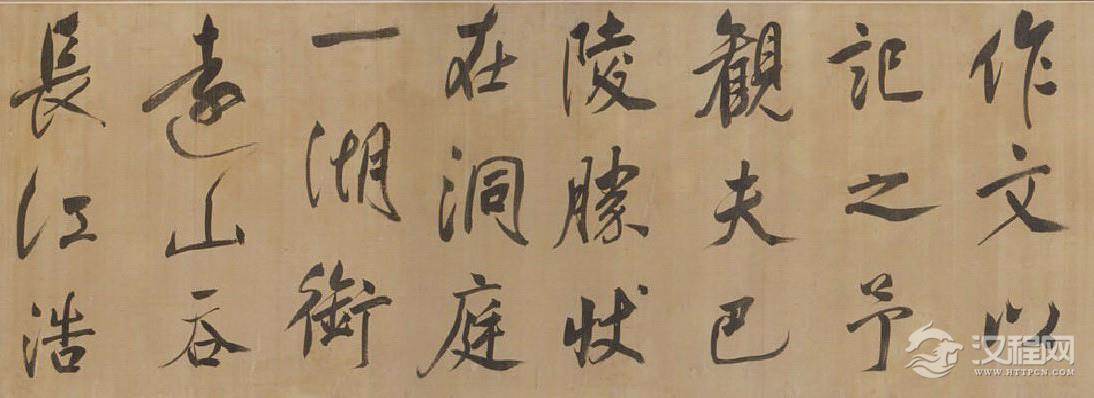 作文以
記之予
觀夫巴
陵勝狀
在洞庭
一湖銜
遠山吞
長江浩
汉程网
WWW.HTTPCN.COM